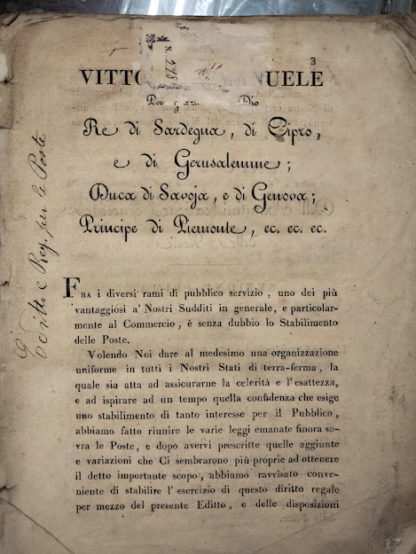 3
VITTO UELE
Per Dio
Re di Sardegna, di Cipro,
e di Gerusalemme;
Duca di Savoja, e di Genova;
Principe di Piemonte, ec. ec. ec.
FRA i diversi rami di pubblico servizio, uno dei più
vantaggiosi a' Nostri Sudditi in generale, e particolar-
mente al Commercio, è senza dubbio lo Stabilimento
delle Poste.
Volendo Noi dare al medesimo una organizzazione
uniforme in tutti i Nostri Stati di terra-ferma, la
quale sia atta ad assicurarne la celerità e l'esattezza,
e ad ispirare ad un tempo quella confidenza che esige
uno stabilimento di tanto interesse per il Pubblico,
abbiamo fatto riunire le varie leggi emanate finora so-
vra le Poste, e dopo avervi prescritte quelle aggiunte
e variazioni che Ci sembrarono più proprie ad ottenere
il detto importante scopo, abbiamo ravvisato conve-
niente di stabilire l'esercizio di questo diritto regale
per mezzo del presente Editto, e delle disposizioni
e Reg. per le Poste